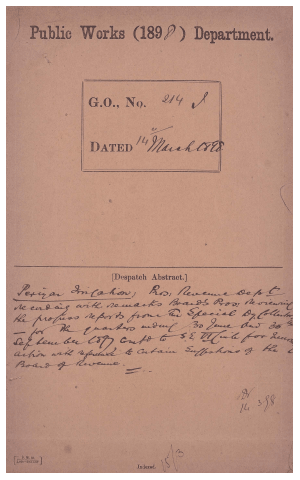 Public Works (1898) Department.
G.O., No. 214 I
DATED 14th March 1898
[Despatch Abstract.]
Periyar Irrigation; Pros: Revenue Dept
recording with remarks Board's Pros: reviewing
the progress reports from the Special Dy Collector
for the quarters ending 30 June and 30
September 1897 and to S.E. for
action with reference to certain suggestions of the
Board of Revenue.
14 3 98
Indexed.
15/3